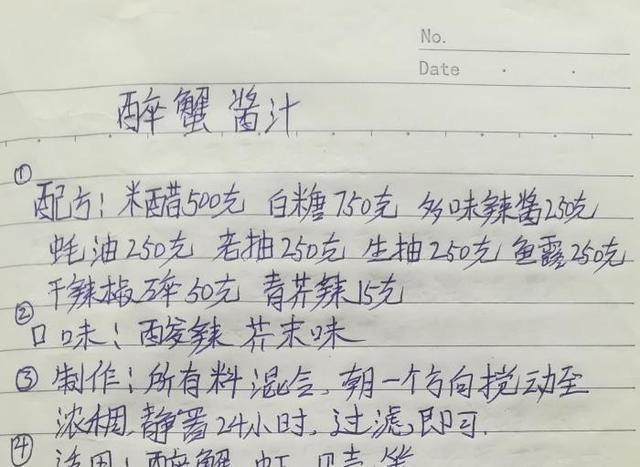 No.
Date
醉蟹酱汁
①
配方：米醋500克 白糖750克 多味辣酱250克
蚝油250克 老抽250克 生抽250克 鱼露250克
干辣椒碎50克 青芥辣15克
②
口味：酸辣 芥末味
③ 制作：所有料混合，朝一个方向搅动至
浓稠，静置24小时，过滤即可.
④
适用：醉蟹、虾、贝壳等